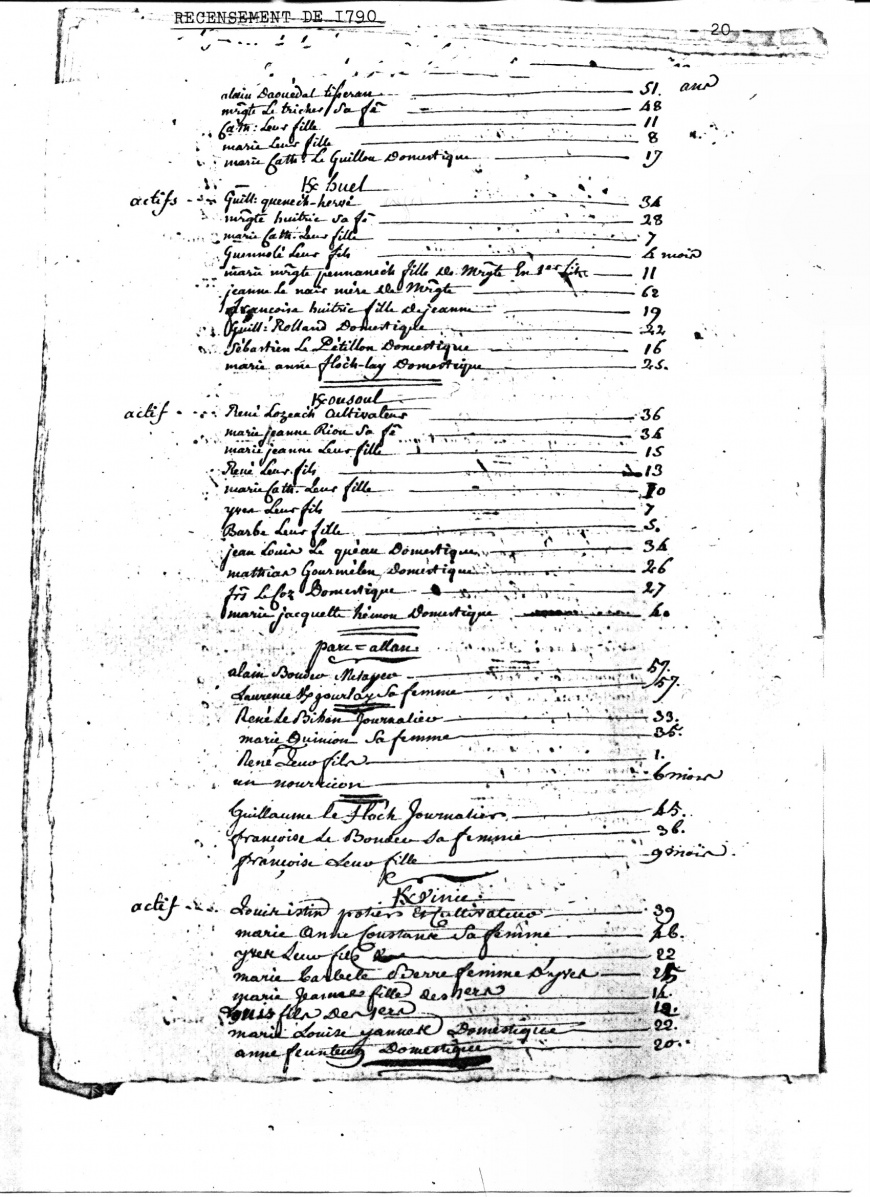 RECENSEMENT DE 1790
20
alain Daouédal tisseran 51. ans
mẽgte Le tricher sa fẽ 48
Cath: Leur fille 11
marie Leur fille 8
marie Cath: Le Guillou Domestique 17
K huel
actifs Guill: quenech-hervé 34
mẽgte huitric sa fẽ 28
marie Cath. Leur fille 7
Guennolé Leur fils 4 mois
marie mẽgte pennanech fille de Mẽgte En 1er Lit 11
jeanne le naïr mère de Mẽgte 62
françoise huitric fille de jeanne 19
Guill: Rolland Domestique 22
Sébastien Le Pétillon Domestique 16
marie anne floch-lay Domestique 25.
Kousoul
actif René Lozeach Cultivateur 36
marie jeanne Riou sa fẽ 34
marie jeanne Leur fille 15
René Leur fils 13
marie Cath. Leur fille 10
yves Leur fils 7
Barbe Leur fille 5.
jean Louis Le quéau Domestique 34
mathias Gourmélen Domestique 26
frs Le Coz Domestique 27
marie jacquette hémon Domestique 40
parc=allan
alain Boudeo Métayer 57.
Laurence Kgourlay sa femme 57.
René Le Bihan Journalier 33.
marie Quinion sa femme 36.
René Leur fils 1.
un nourricon 6 mois
Guillaume le Floch Journalier 45.
françoise Le Boudeo sa femme 36.
françoise Leur fille 9 mois.
Kvinic
actif Louis istin potier Et Cultivateur 39
marie Anne Coustans sa femme 46.
yves Leur fils 22
marie Barbe femme D'yves 25
marie Jeanne fille des sers 14.
Louis fils des sers 12.
marie Louise yannek Domestique 22.
anne feunteun Domestique 20.